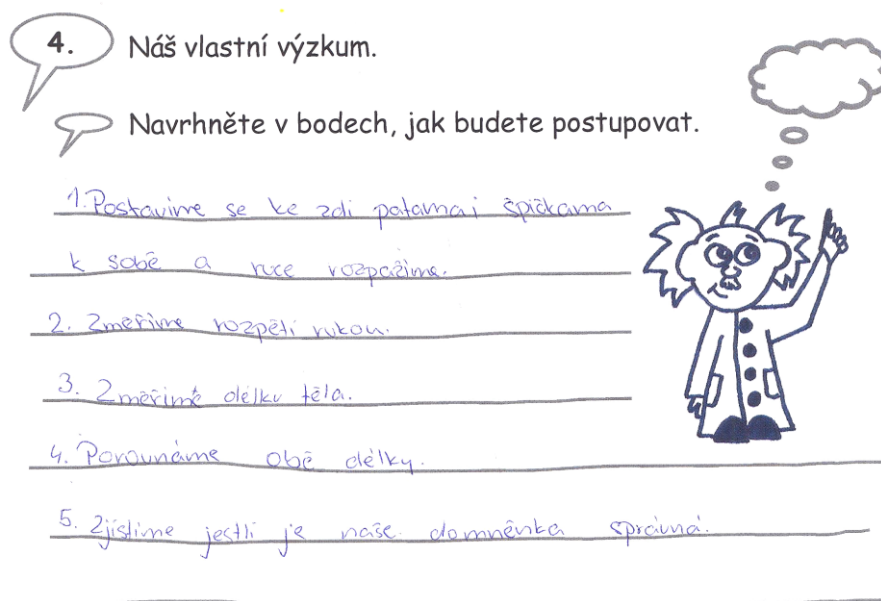 4. Náš vlastní výzkum.
Navrhněte v bodech, jak budete postupovat.
1. Postavíme se ke zdi patama i špičkama
k sobě a ruce rozpažíme.
2. Změříme rozpětí rukou.
3. Změříme délku těla.
4. Porovnáme obě délky.
5. Zjistíme jestli je naše domněnka správná.